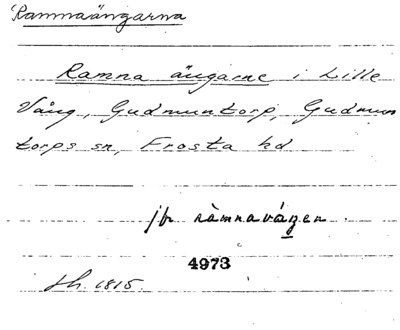 Ramnaängarna
Ramna ängarne i Lille
Vång, Gudmuntorp, Gudmun
torps sn, Frosta hd
jfr ràmnavágen
4973
sh. 1815.